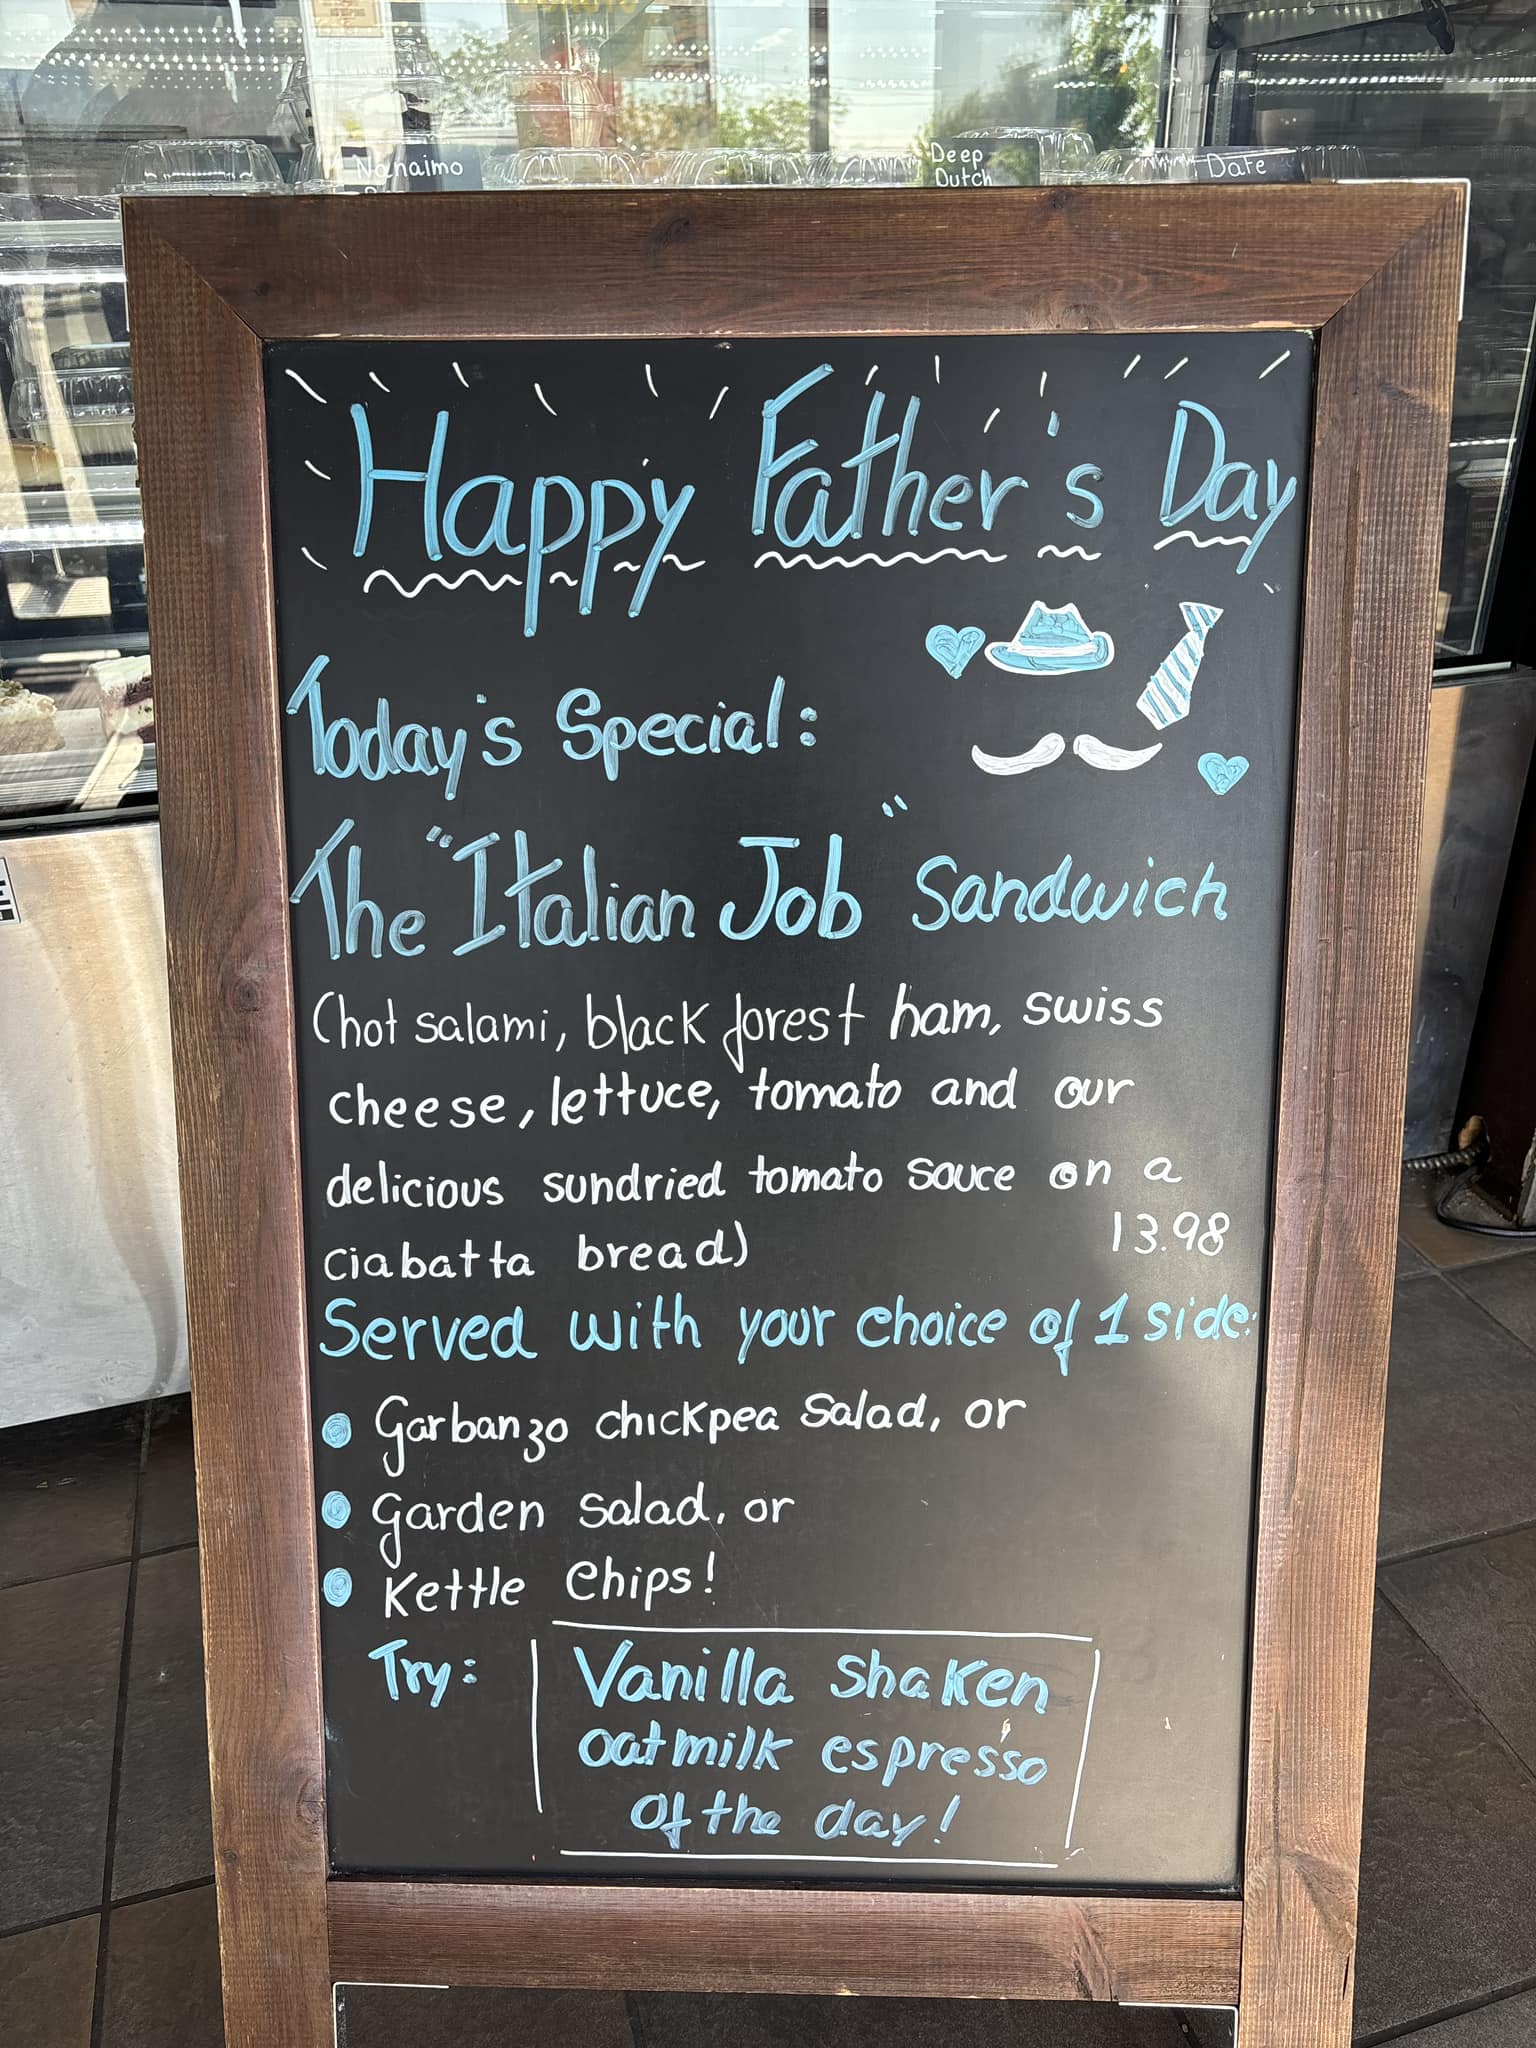 Nanaimo
Deep
Dutch
Date
Happy Father's Day
Today's Special:
The "Italian Job" Sandwich
(hot salami, black forest ham, swiss
cheese, lettuce, tomato and our
delicious sundried tomato sauce on a
ciabatta bread) 13.98
Served with your choice of 1 side:
Garbanzo chickpea salad, or
Garden salad, or
Kettle chips!
Try: Vanilla Shaken
oatmilk espresso
of the day!